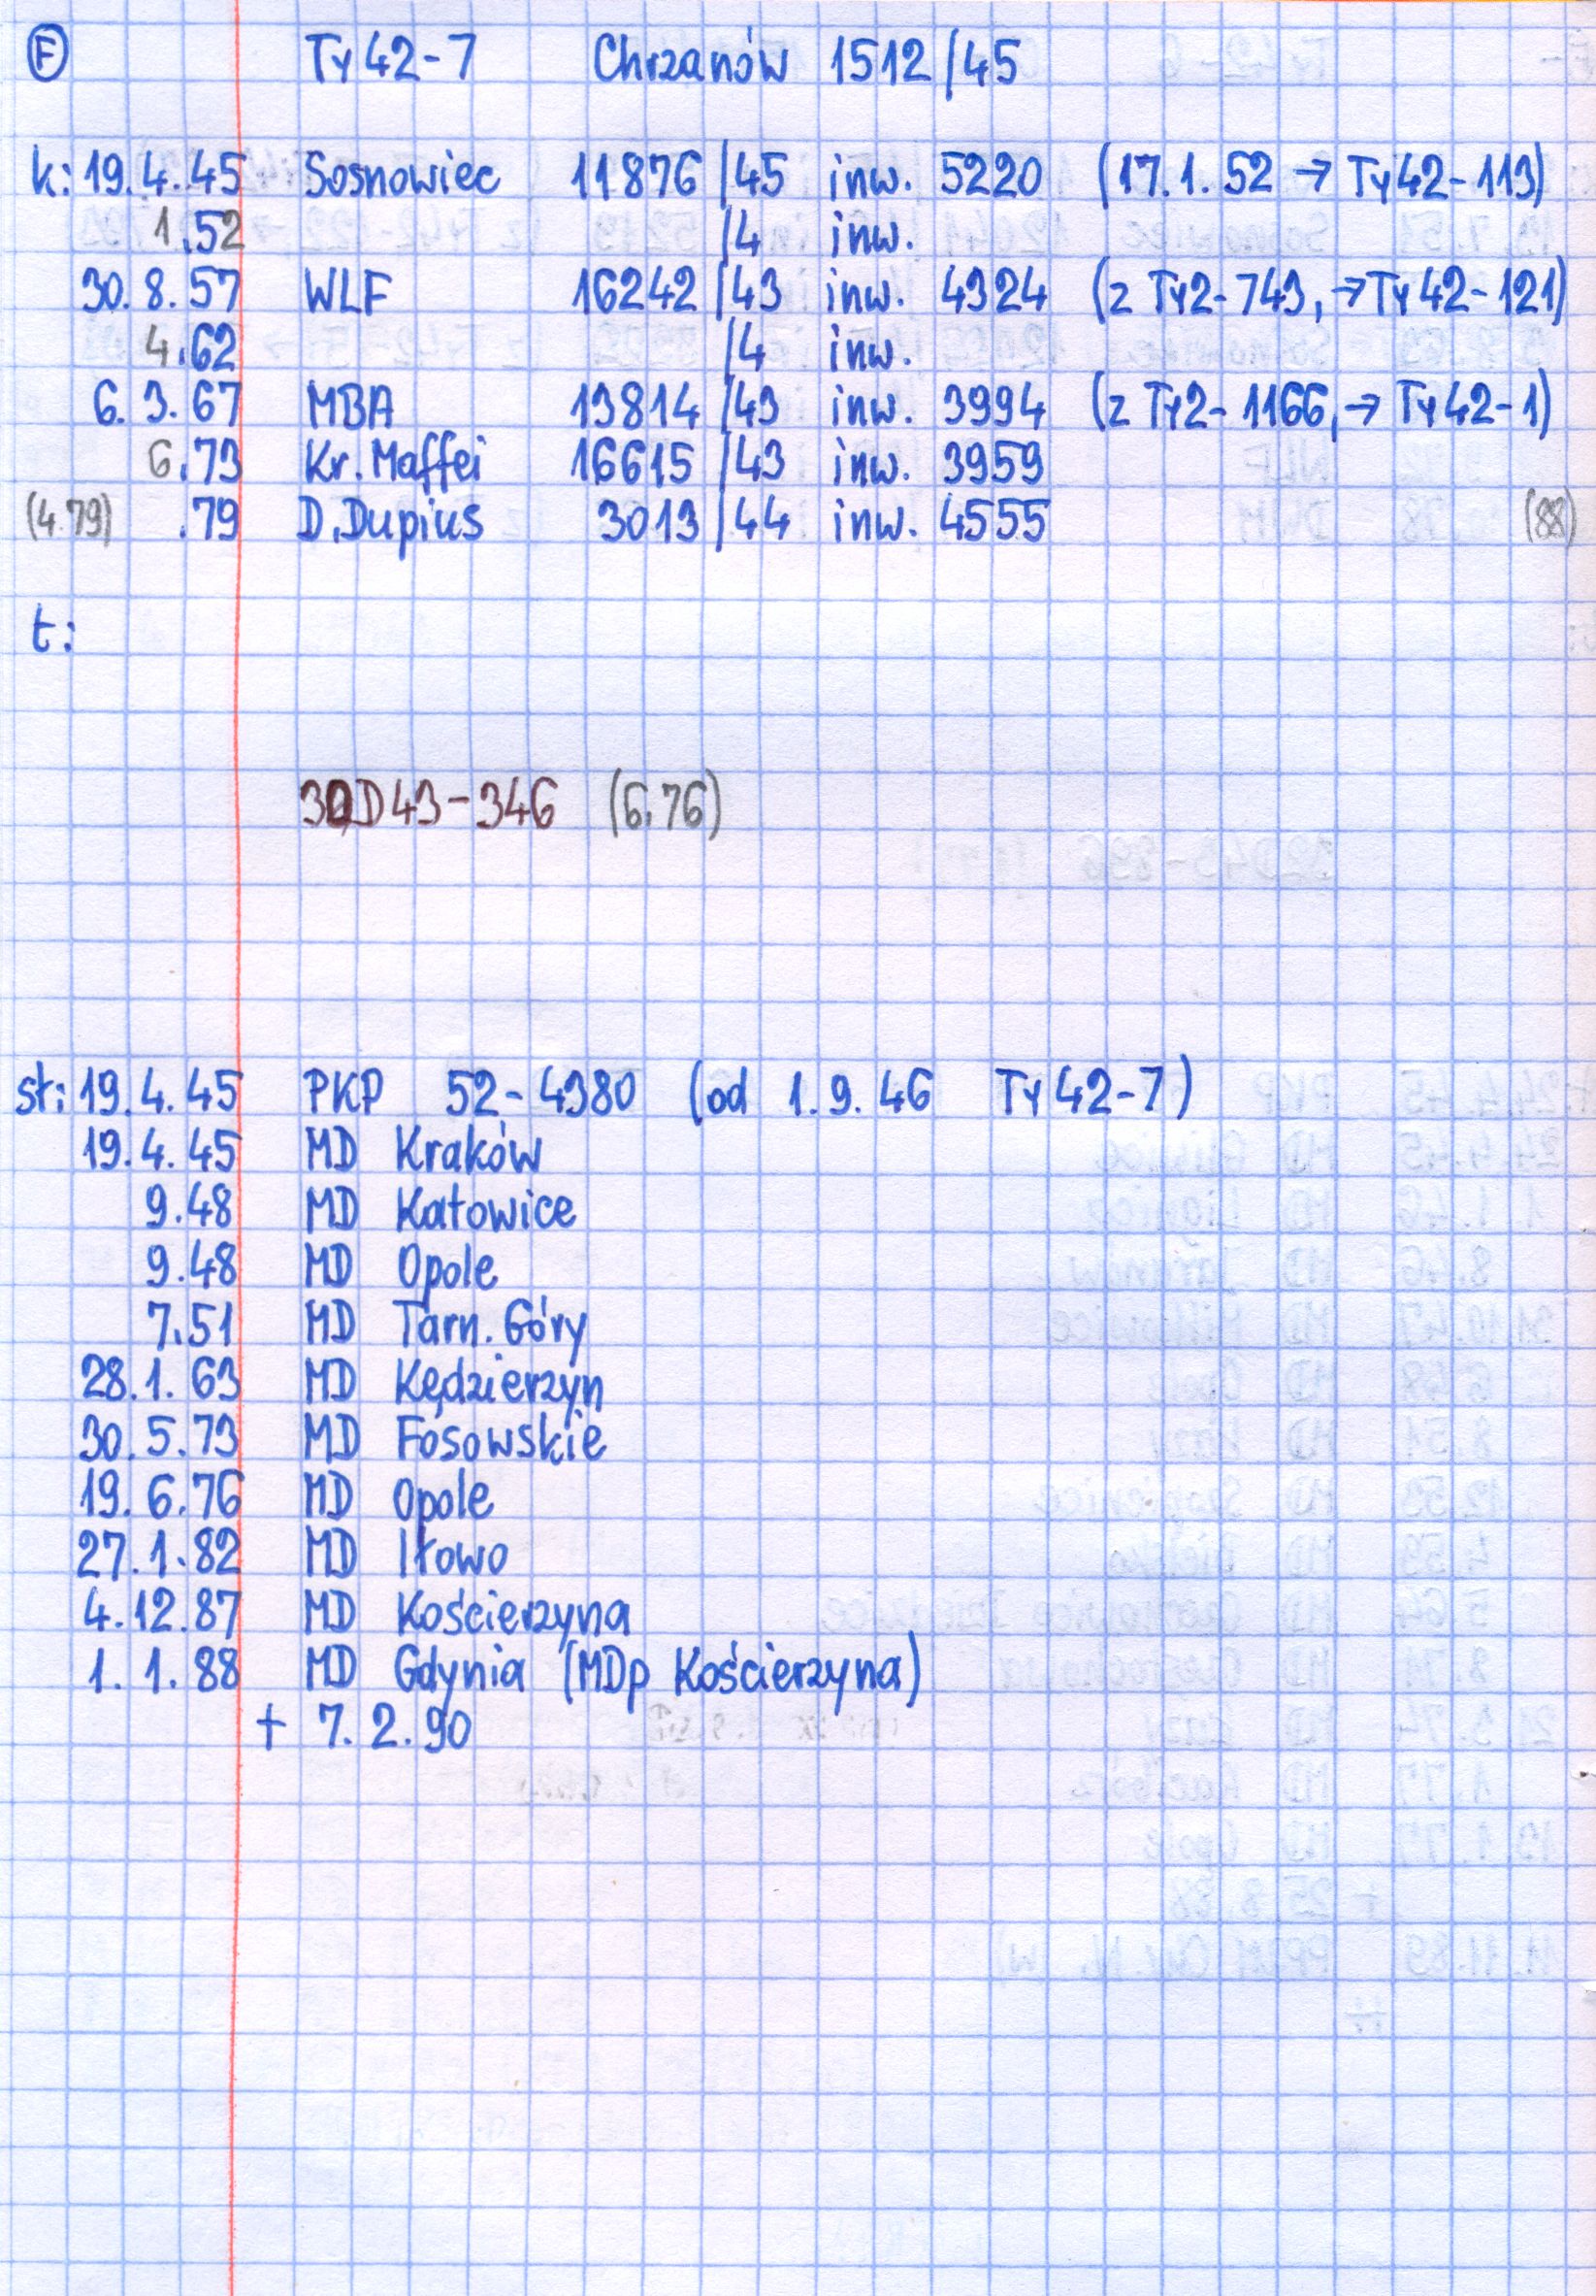 F Ty42-7 Chrzanów 1512/45
k: 19.4.45 Sosnowiec 11876/45 inw. 5220 (17.1.52 → Ty42-113)
1.52 /4 inw.
30.8.57 WLF 16242/43 inw. 4324 (z Ty2-743, → Ty42-121)
4.62 /4 inw.
6.3.67 MBA 13814/43 inw. 3994 (z Ty2-1166, → Ty42-1)
6.73 Kr. Maffei 16615/43 inw. 3959
(4.79) .79 D.Dupius 3013/44 inw. 4555 (88)
t:
30D43-346 (6.76)
st: 19.4.45 PKP 52-4380 (od 1.9.46 Ty42-7)
19.4.45 MD Kraków
9.48 MD Katowice
9.48 MD Opole
7.51 MD Tarn. Góry
28.1.63 MD Kędzierzyn
30.5.73 MD Fosowskie
19.6.76 MD Opole
27.1.82 MD Iłowo
4.12.87 MD Kościerzyna
1.1.88 MD Gdynia (MDp Kościerzyna)
+ 7.2.90